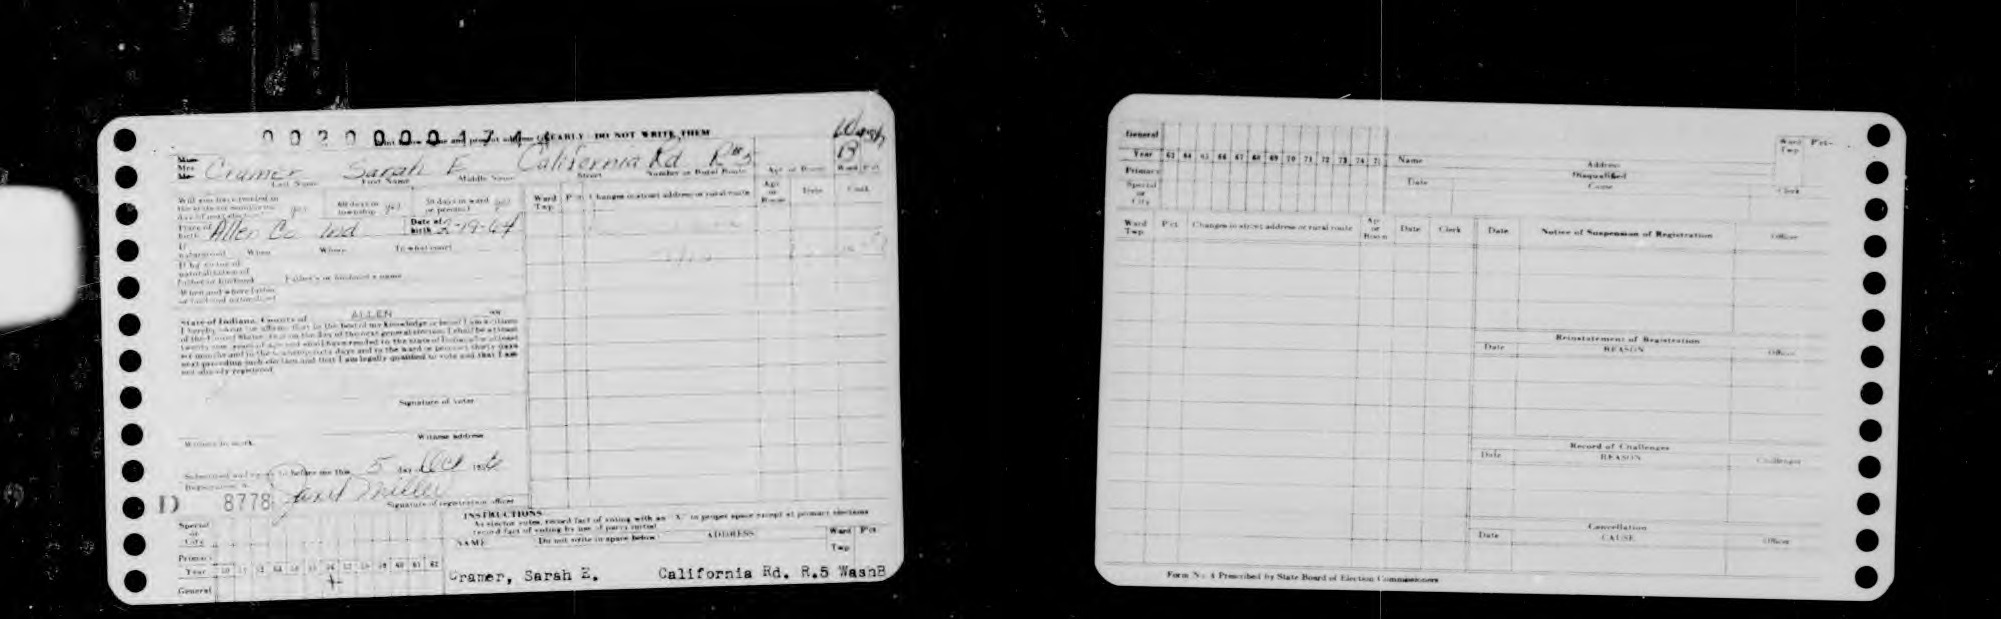 0020000474
CLEARLY DO NOT WRITE THEM
Wash
B
Mrs Cramer Sarah E California Rd R#5
Last Name First Name Middle Name Street Number or Rural Route Apt or Room Ward Pct
Will you have resided in yes 60 days in township yes 30 days in ward or precinct? yes
Place of birth Allen Co Ind Date of birth 2-19-64
If naturalized When Where In what court
If by virtue of naturalization of Father or husband Father's or husband's name
When and where father or husband naturalized
Ward Twp. Pct Changes in street address or rural route Apt or Room Date Clerk
State of Indiana, County of ALLEN ss:
I hereby swear (or affirm) that to the best of my knowledge or belief I am a citizen
of the United States, that on the day of the next general election, I shall be at least
twenty one years of age and shall have resided in the state of Indiana for at least
six months and in the township sixty days and in the ward or precinct thirty days
next preceding such election and that I am legally qualified to vote and that I am
not already registered.
Signature of voter
Witness to mark Witness address
Subscribed and sworn to before me this 5 day Oct
Registration #
D 8778 Janet Miller
Signature of registration officer
INSTRUCTIONS
As elector votes, record fact of voting with an "X" in proper space except at primary elections
record fact of voting by use of party initial
NAME Do not write in space below ADDRESS Ward Twp Pct
Special or City
Primary
Year
General
Cramer, Sarah E. California Rd. R.5 WashB
General
Year 63 64 65 66 67 68 69 70 71 72 73 74 75 Name Address Ward Twp Pct.
Primary Disqualified
Special or City Date Cause Clerk
Ward Twp. Pct Changes in street address or rural route Ap or Room Date Clerk Date Notice of Suspension of Registration Officer
Reinstatement of Registration
Date REASON Officer
Record of Challenges
Date REASON Challenger
Cancellation
Date CAUSE Officer
Form No. 4 Prescribed by State Board of Election Commissioners